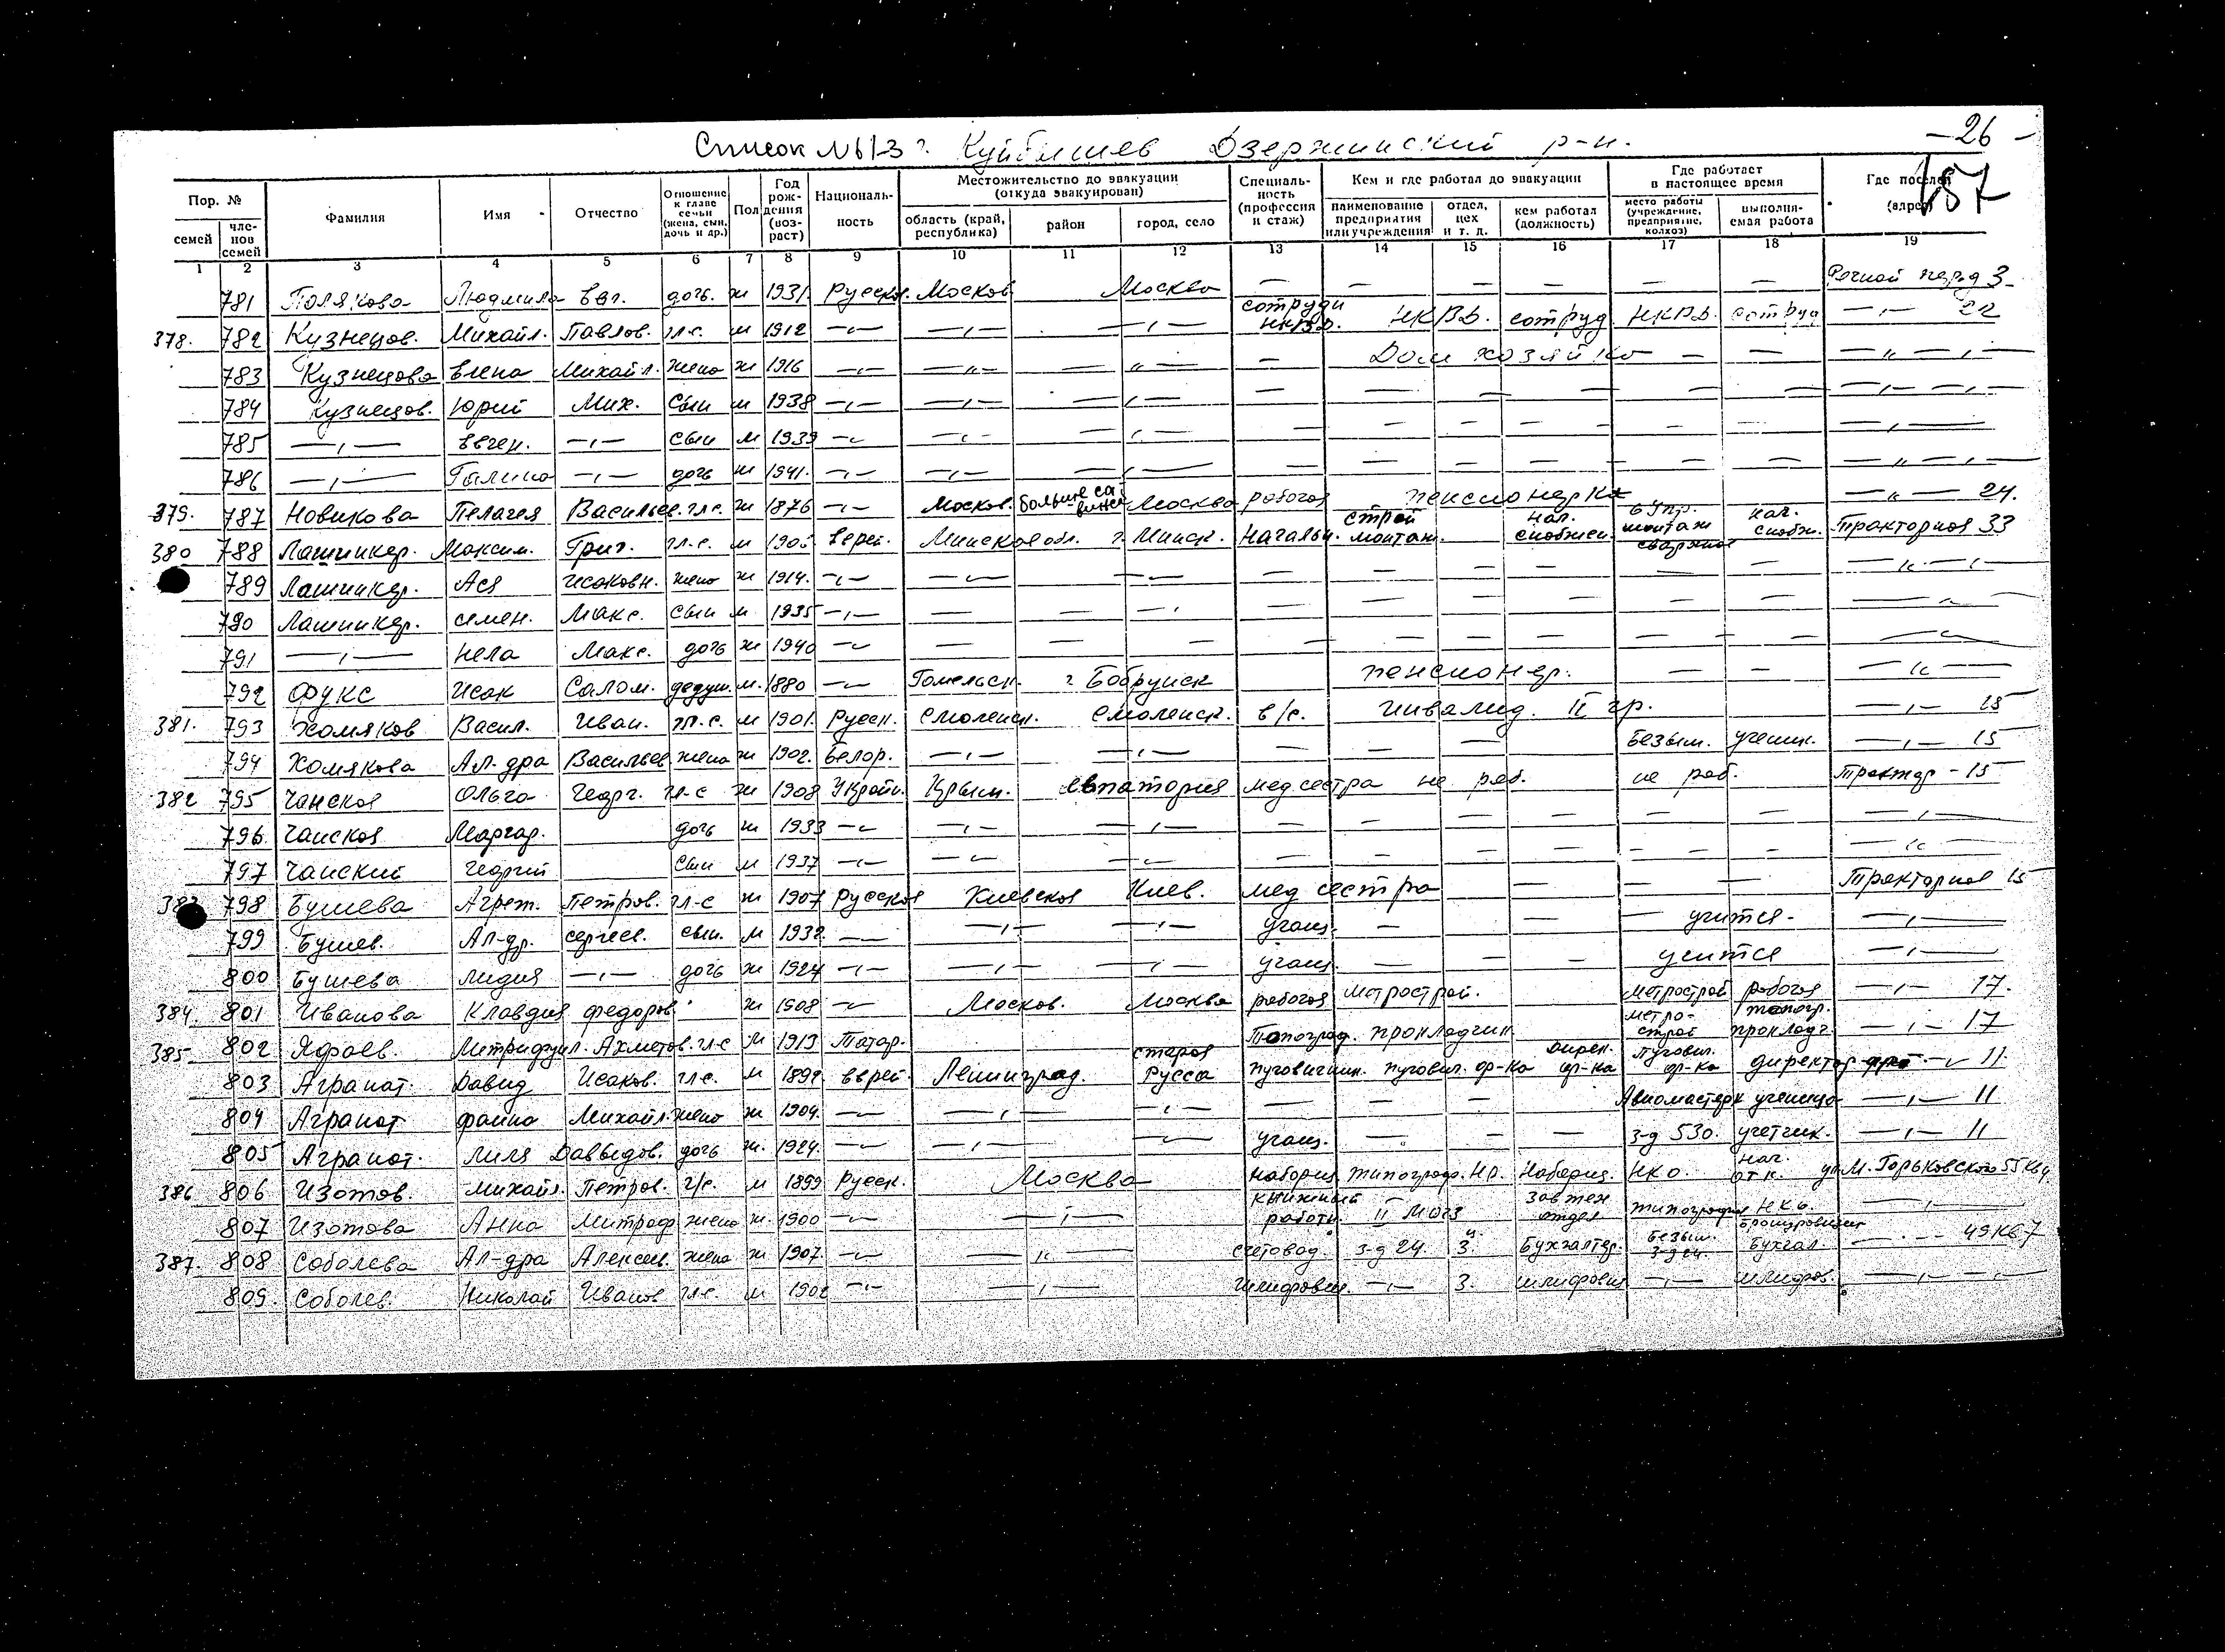 Список №613 г. Куйбышев Дзержинский р-н.
- 26 -
157
Пор. № Фамилия Имя Отчество Отношение к главе семьи (жена, сын, дочь и др.) Пол Год рождения (возраст) Националь-ность Местожительство до эвакуации (откуда эвакуирован) Специаль-ность (профессия и стаж) Кем и где работал до эвакуации Где работает в настоящее время Где поселен (адрес)
семей чле-нов семей область (край, республика) район город, село наименование предприятия или учреждения отдел, цех и т. д. кем работал (должность) место работы (учреждение, предприятие, колхоз) выполня-емая работа
1 2 3 4 5 6 7 8 9 10 11 12 13 14 15 16 17 18 19
781 Полякова Людмила Евг. дочь. ж 1931. Русск. Москов. Москва — — — — — — 3
378. 782 Кузнецов. Михаил. Павлов. гл.с. м 1912 —„— —„— —„— сотрудн НКВД. НКВД. сотруд. НКВД. сотруд —„— 22
783 Кузнецова Елена Михайл. жена ж 1916 —„— —„— —„— — Дом хозяйка — — —„— —„—
784 Кузнецов. Юрий Мих. сын м 1938 —„— —„— —„— — — — — — —„— —„—
785 —„— Евген. —„— сын м 1939 —„— —„— —„— — — — — — — —„—
786 —„— Галина —„— дочь ж 1941. —„— —„— —„— — — — — — — —„— —„—
379. 787 Новикова Пелагея Васильев. гл.с. ж 1876 —„— Москов. Москва рабочая пенсионерка —„— 24.
380 788 Лашинкер. Максим. Григ. гл.с. м Еврей. Минская обл. г. Минск. Начальн. строй монтаж. нач. снабжен. монтаж нач. снабж. Тракторная 33
789 Лашинкер. Ася Исаковн. жена ж 1914. —„— —„— —„— — — — — — — —„— —„—
790 Лашинкер. Семен. Макс. сын м 1935 —„— — — —„— — — — — — — —„—
791 —„— Нела Макс. дочь ж 1940 —„— — — — — — — — — — —„—
792 Фукс Исак Салом. дедуш. м. 1880 —„— Гомельск. г. Бобруйск пенсионер. — — —„—
381. 793 Хомяков Васил. Иван. гл.с. м 1901. Русск. Смоленск. Смоленск. в/с. инвалид. II гр. —„— 15
794 Хомякова Ал-дра Васильев. жена ж 1902. Белор. —„— —„— — — — Безым. ученик. —„— 15
382 795 Чанская Ольга Георг. гл.с ж 1908 Украин. Крым. Евпатория медсестра не раб. не раб. Трактор - 15
796. Чанская Маргар. дочь ж 1933 —„— —„— —„— — — — — — — —„—
797 Чанский Георгий сын м 1937 —„— —„— —„— — — — — — — —„—
383 798 Бушева Петров. гл-с ж 1907 Русская Киевская Киев. мед сестра — — — Тракторная 15
799 Бушев. Ал-др. Сергеев. сын. м 1932. —„— —„— —„— учащ. — — — учится. —„—
800 Бушева Лидия —„— дочь ж 1924 —„— —„— —„— учащ. — — — учится —„—
384. 801 Иванова Клавдия Федоров. ж 1908 —„— Москов. Москва рабочая Метрострой. Метрострой рабочая —„— 17.
385 802 Ахметов. гл-с м 1913 Татар. проходчик метро-строй проходч. —„— 17
803 Агранат. Давид Исаков. гл.с. м 1892 Еврей. Ленинград. Старая Русса пуговичник. пугович. ф-ка дирек. ф-ка пугович. ф-ка директор —„— 11.
804 Агранат Фаина Михайл. жена ж 1904. —„— —„— —„— — — — Авиомастерк ученица —„— 11
805 Агранат. Лиля Давыдов. дочь ж. 1924. —„— —„— —„— учащ. — — — з-д 530. учетчик. —„— 11
386 806 Изотов. Михаил. Петров. г/с. м 1899 Русск. Москва наборщ. типограф. Наборщ. НКО. нач. отк. ул. М. Горьковского 55 кв 4
807 Изотова Анна Митроф. жена ж. 1900 —„— —„— книжный работн. II зав тех отдел типография НКО. —„—
387. 808 Соболева Ал-дра Алексеев. жена ж 1907. —„— —„— счетовод. з-д 24. 3 Бухгалтер. Безым. з-д 24. Бухгал. —„— 49 кв. 7
809. Соболев. Николай Иванов гл.с. м 1902 —„— —„— Шлифовщ. —„— 3. шлифовщ —„— шлифов. —„— —„—